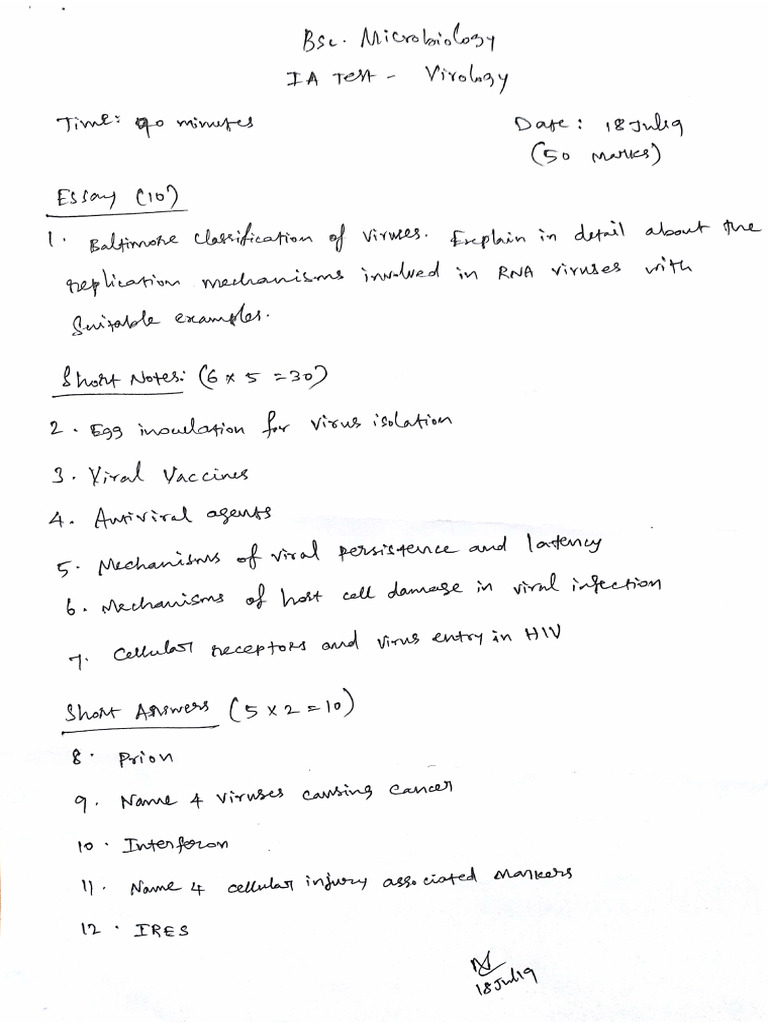 BSc. Microbiology
IA Test - Virology
Time: 90 minutes
Date: 18Jul19
(50 Marks)
Essay (10)
1. Baltimore Classification of Viruses. Explain in detail about the
replication mechanisms involved in RNA viruses with
Suitable examples.
Short Notes: (6 x 5 = 30)
2. Egg inoculation for virus isolation
3. Viral Vaccines
4. Antiviral agents
5. Mechanisms of viral persistence and latency
6. Mechanisms of host cell damage in viral infection
7. Cellular receptors and virus entry in HIV
Short Answers (5 x 2 = 10)
8. Prion
9. Name 4 viruses causing cancer
10. Interferon
11. Name 4 cellular injury associated markers
12. IRES
18Jul19